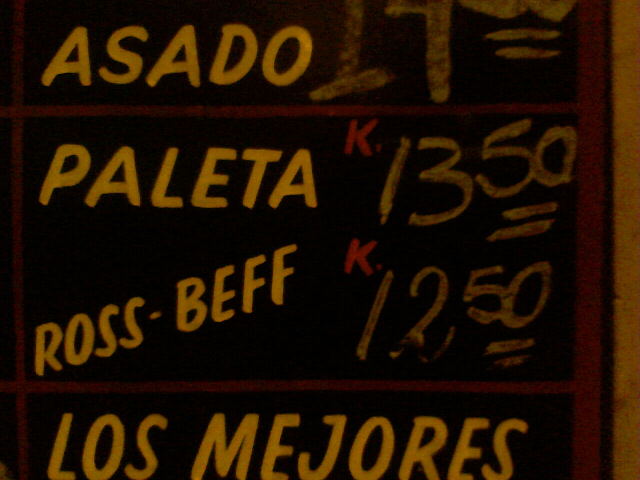 ASADO
PALETA K. 13 50
ROSS-BEFF K. 12 50
LOS MEJORES